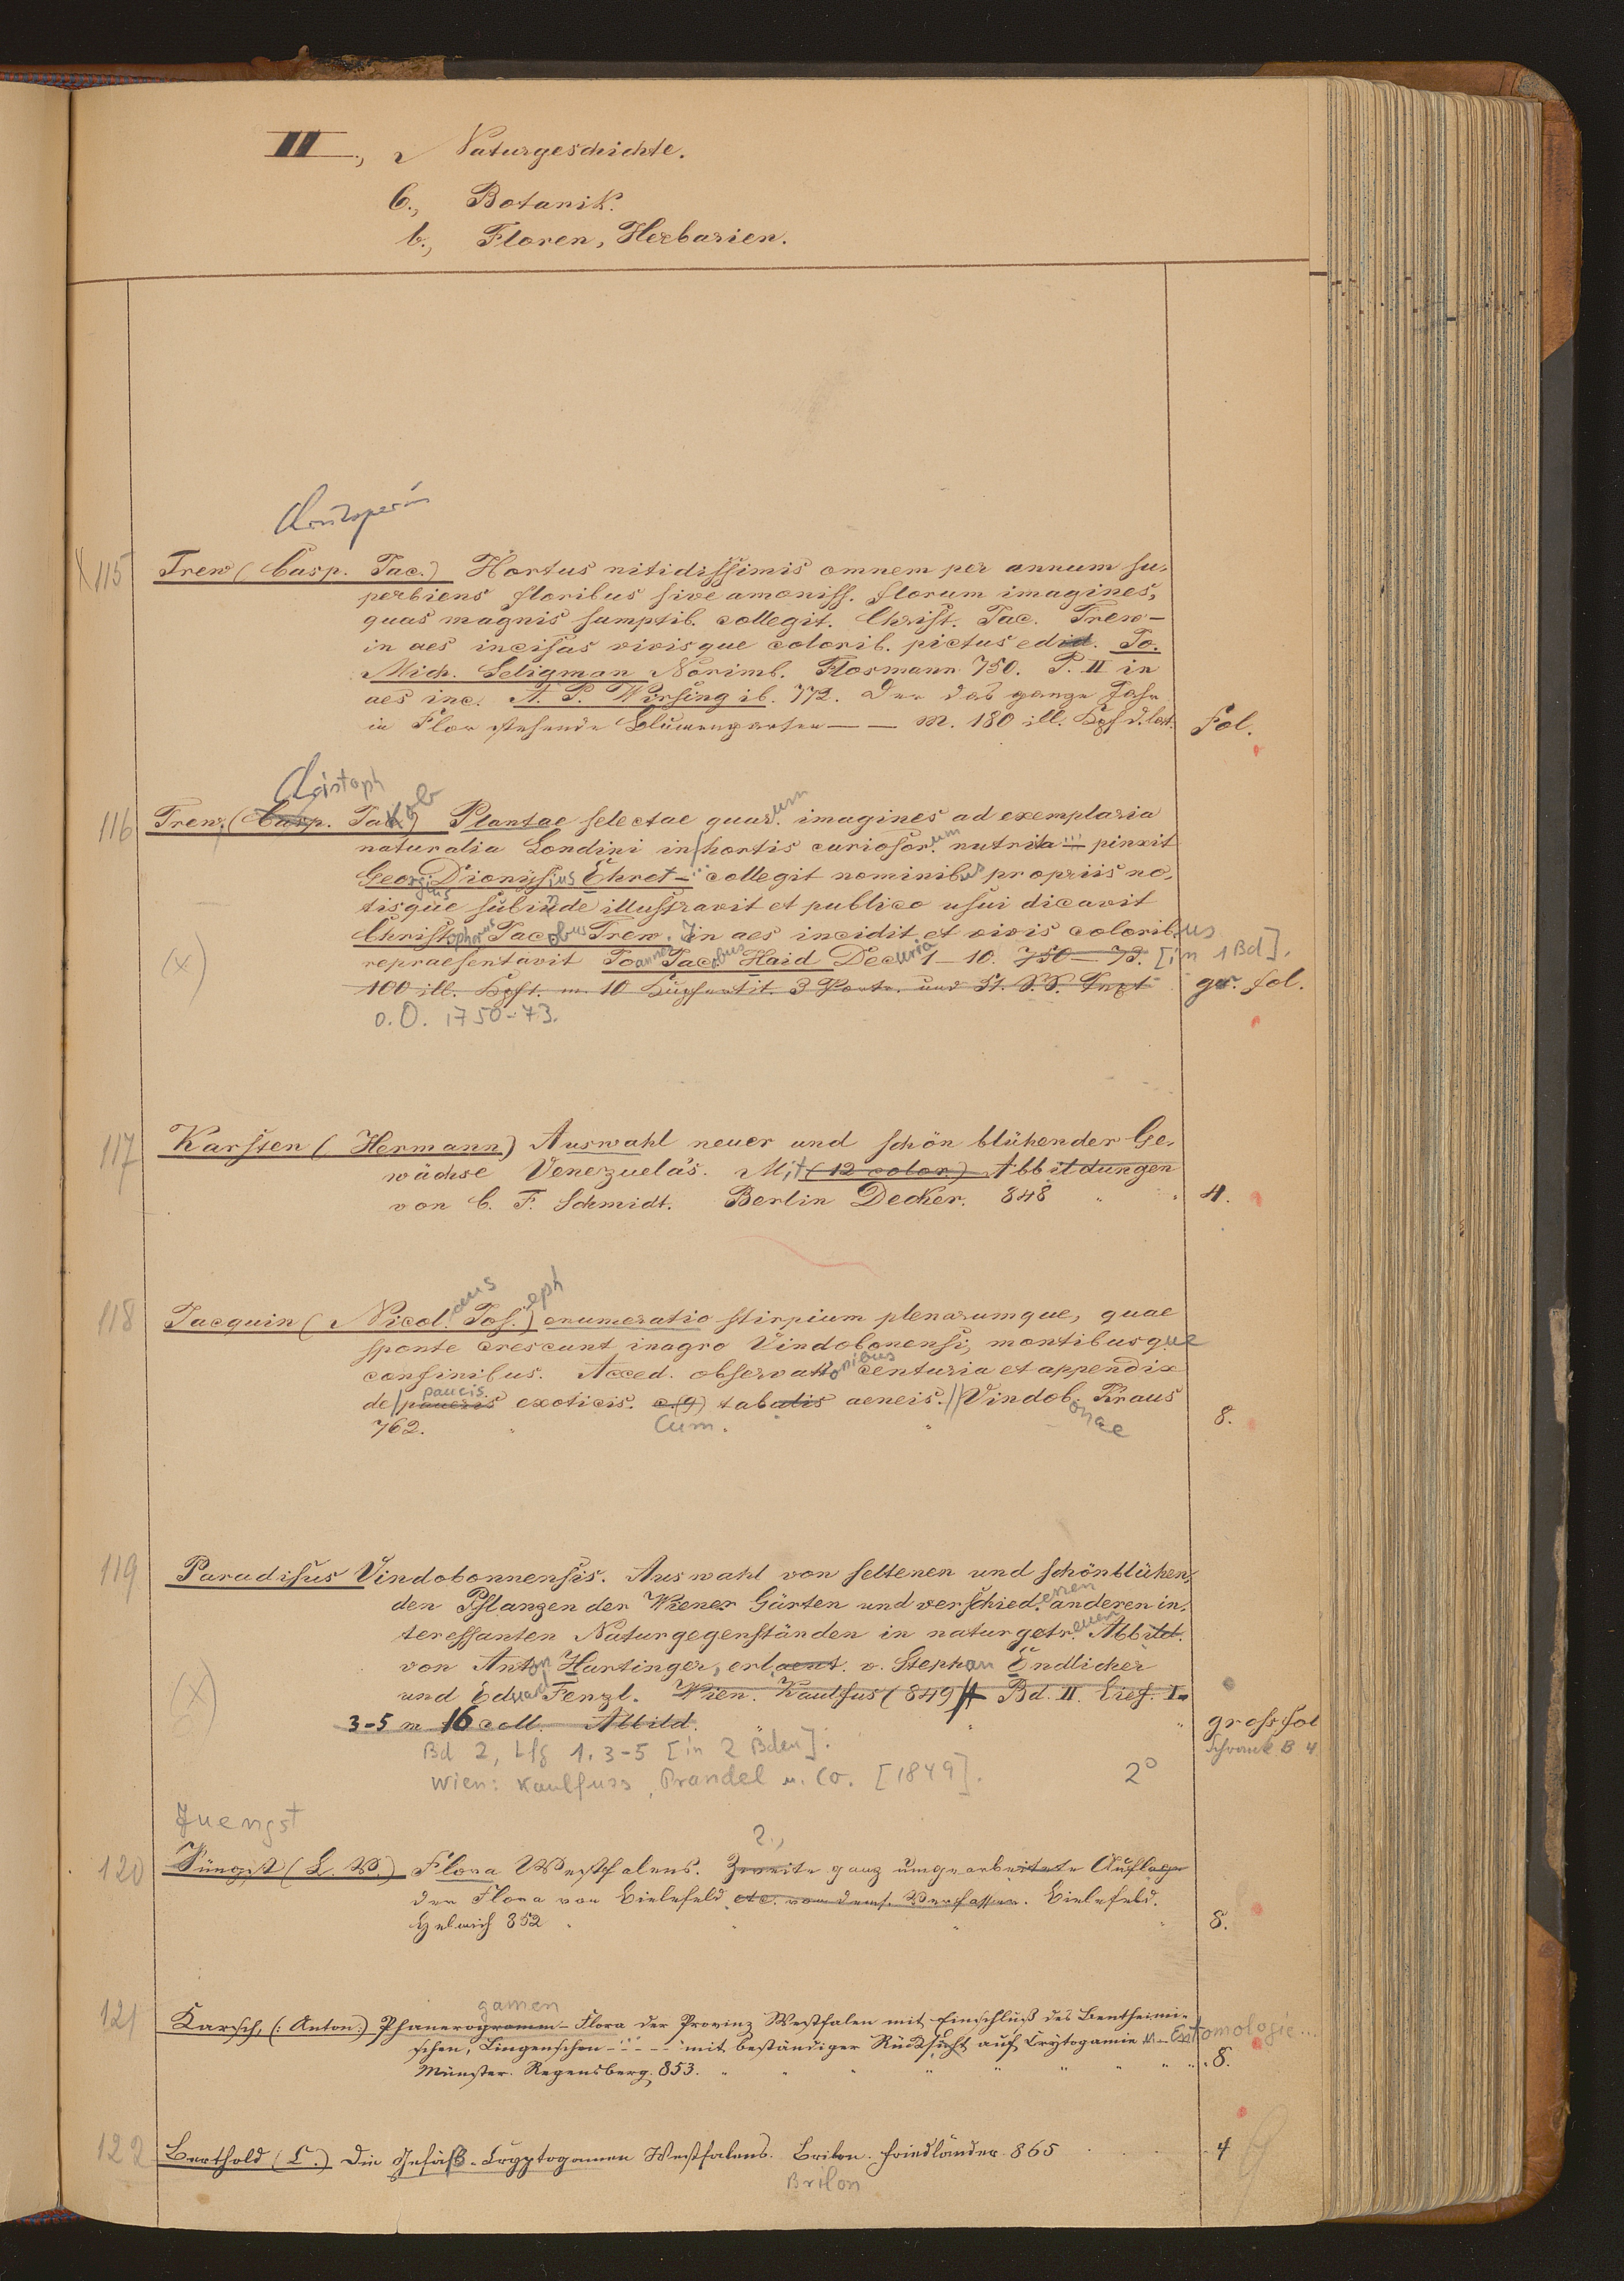 II., Naturgeschichte.
C., Botanik.
b., Floren, Herbarien.
115 Trew (Casp. Jac.) Hortus nitidissimis omnem per annum su-
perbiens floribus sive amoniss. florum imagines,
quas magnis sumptib. collegit. Christ. Jac. Trew—
in aes incisas vivisque colorib. pictus edid. Jo.
Mich. Seligman Norimb. Flosmann 750. P. II in
aes inc. A. P. Wirsing ib. 772. Der das ganze Jahr
in Flor stehende Blumengarten — — m. 180 ill. Kpf d. lat. fol.
Christoph
116 Trew, (Casp. Jakob) Plantae selectae quarum imagines ad exemplaria
naturalia Londini in hortis curiosorum nutrita ... pinxit
Georgius Dionysius Ehret — collegit nominibus propriis no-
tisque subinde illustravit et publico usui dicavit
Christophorus Jacobus Trew. In aes incidit et vivis coloribus
(x) repraesentavit Joannes Jacobus Haid Decuria 1–10. 750–73. [in 1 Bd].
100 ill. Kpft. m. 10 Kupfertit. 3 Portr. und 51. S.S. Text gr. fol.
o.O. 1750-73.
117 Karsten (Hermann) Auswahl neuer und schön blühender Ge-
wächse Venezuela's. Mit (12 color) Abbildungen
von C. F. Schmidt. Berlin Decker. 848 4.
aus eph
118 Jacquin (Nicol. Jos.) enumeratio stirpium plenarumque, quae
sponte crescunt inagro Vindobonensi, montibusque
confinibus. Acced. observationibus centuria et appendix
paucis
de paucris exoticis. c. (9) tabulis aeneis. // Vindobonae Kraus
762. Cum. 8.
119 Paradisus Vindobonnensis. Auswahl von seltenen und schönblühen-
den Pflanzen der Wiener Gärten und verschiedenen anderen in-
teressanten Naturgegenständen in naturgetreuen Abbild.
von Anton Hartinger, erlaeut. v. Stephan Endlicher
(x) und Eduard Fenzl. Wien. Kaulfus (849 Bd. II. Lief. I.
3-5 m 16 coll. Abbild. gross fol
Schrank B 4
Bd 2, Lfg 1. 3-5 [in 2 Bden].
Wien: Kaulfuss, Prandel u. Co. [1849]. 2°
Juengst
2.,
120 Jüngst (L. V.) Flora Westfalens. Zweite ganz umgearbeitete Auflage
der Flora von Bielefeld etc. von dems. Verfasser. Bielefeld.
Helmich 852 8.
gamen
121 Karsch, (: Anton:) Phanerogramm-Flora der Provinz Westfalen mit Einschluß des Bentheimi-
schen, Lingenschen — ... — mit beständiger Rücksicht auf Crytogamie u. Entomologie...
Münster. Regensberg. 853. 8.
122 Berthold (C.) Die Gefäß-Cryptogamen Westfalens. Brilon. Friedländer 865 4
Brilon